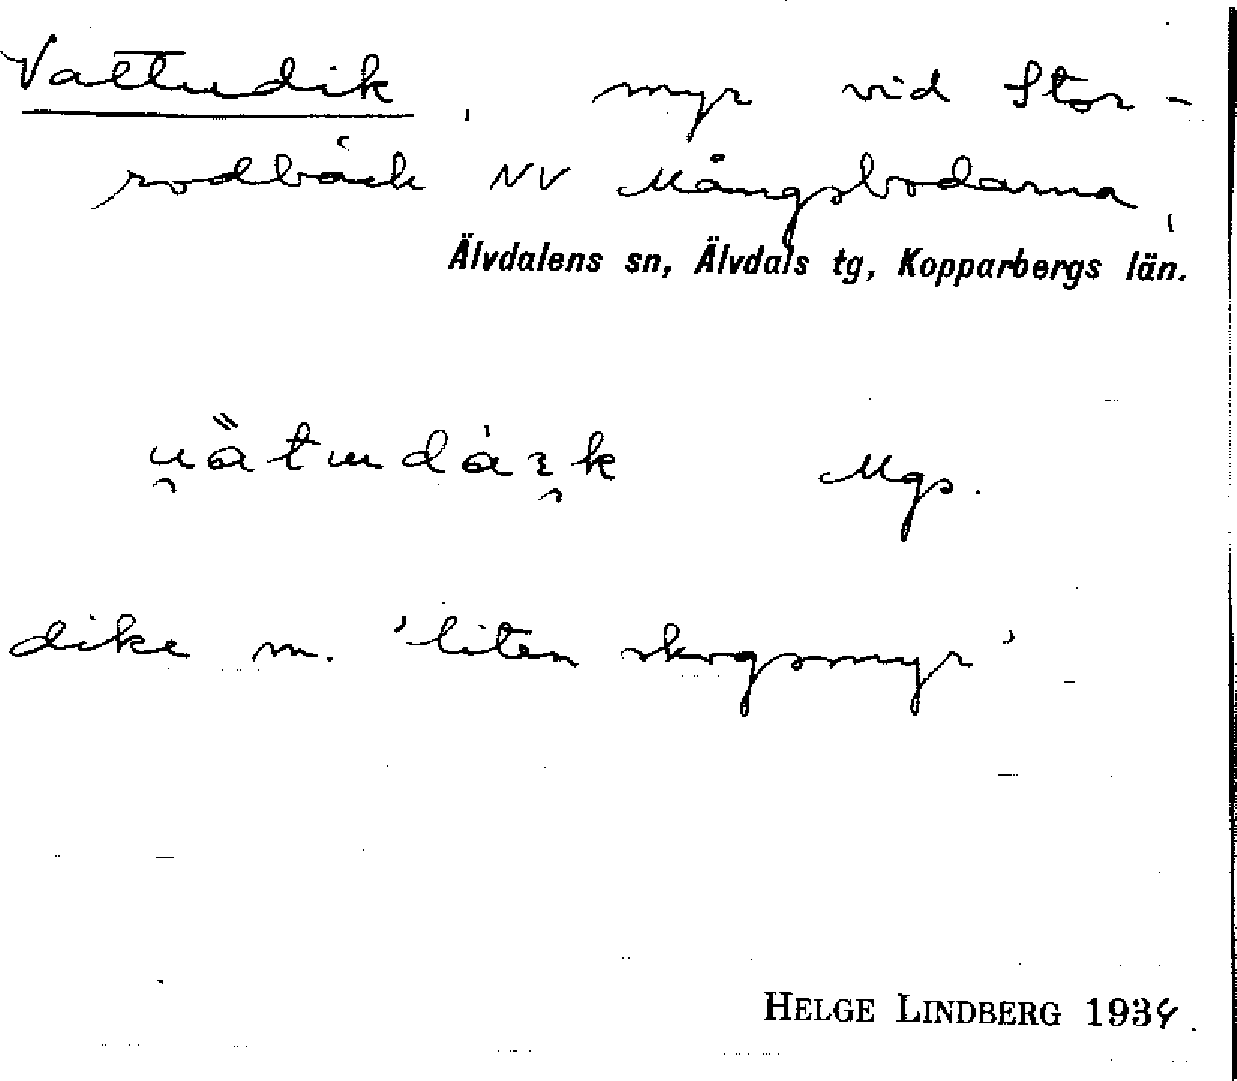 Vattudik, myr vid Stor-
rodbäck NV Mångsbodarna,
Älvdalens sn, Älvdals tg, Kopparbergs län.
Mgs.
dike m. 'liten skogsmyr'
HELGE LINDBERG 1934.